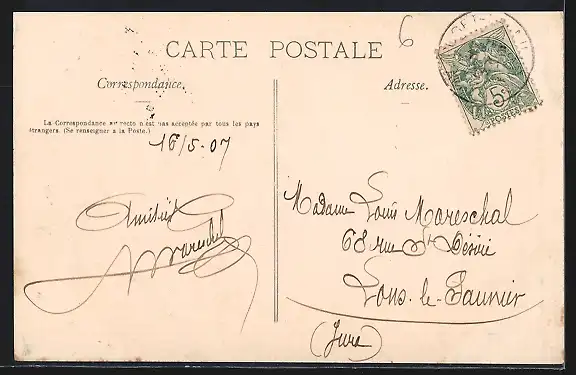 CARTE POSTALE
6
Correspondance.
Adresse.
La Correspondance au recto n'est pas acceptée par tous les pays
étrangers. (Se renseigner à la Poste.)
16/5-07
5c
Amitiés
Mareschal
Madame Louis Mareschal
68 rue St Désiré
Lons-le-Saunier
(Jura)